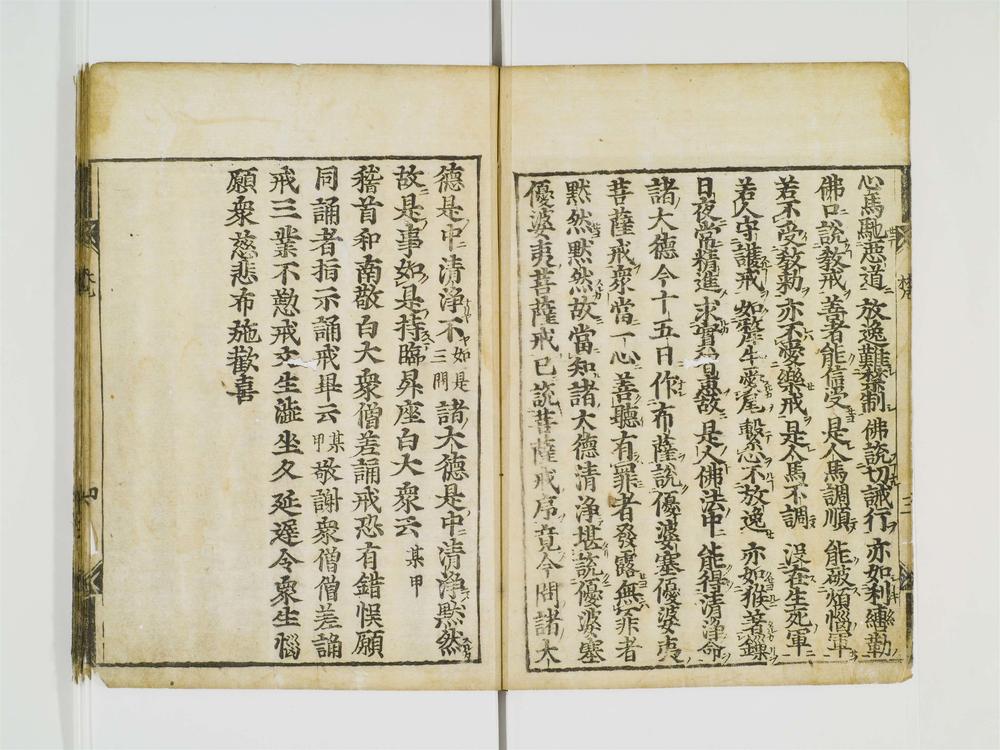 心馬馳悪道 放逸難禁制 佛說切誡行 亦如利轡勒
佛口說教戒 善者能信受 是人馬調順 能破煩惱軍
若不受教勅 亦不愛樂戒 是人馬不調 没在生死軍
若人守護戒 如犛牛愛尾 繫心不放逸 亦如猴著鏁
日夜常精進 求實智慧故 是人佛法中 能得清淨命
諸大德今十五日作布薩說優婆塞優婆夷
菩薩戒衆當一心善聽有罪者發露無罪者
黙然黙然故當知諸大德清淨堪說優婆塞
優婆夷菩薩戒已說菩薩戒序竟今問諸大
德是中清淨不 如是三問 諸大德是中清淨黙然
故是事如是持臨昇座白大衆云 某甲
稽首和南敬白大衆僧差誦戒恐有錯悞願
同誦者指示誦戒畢云 某甲 敬謝衆僧僧差誦
戒三業不懃戒文生澁坐久延遅令衆生惱
願衆慈悲布施歡喜